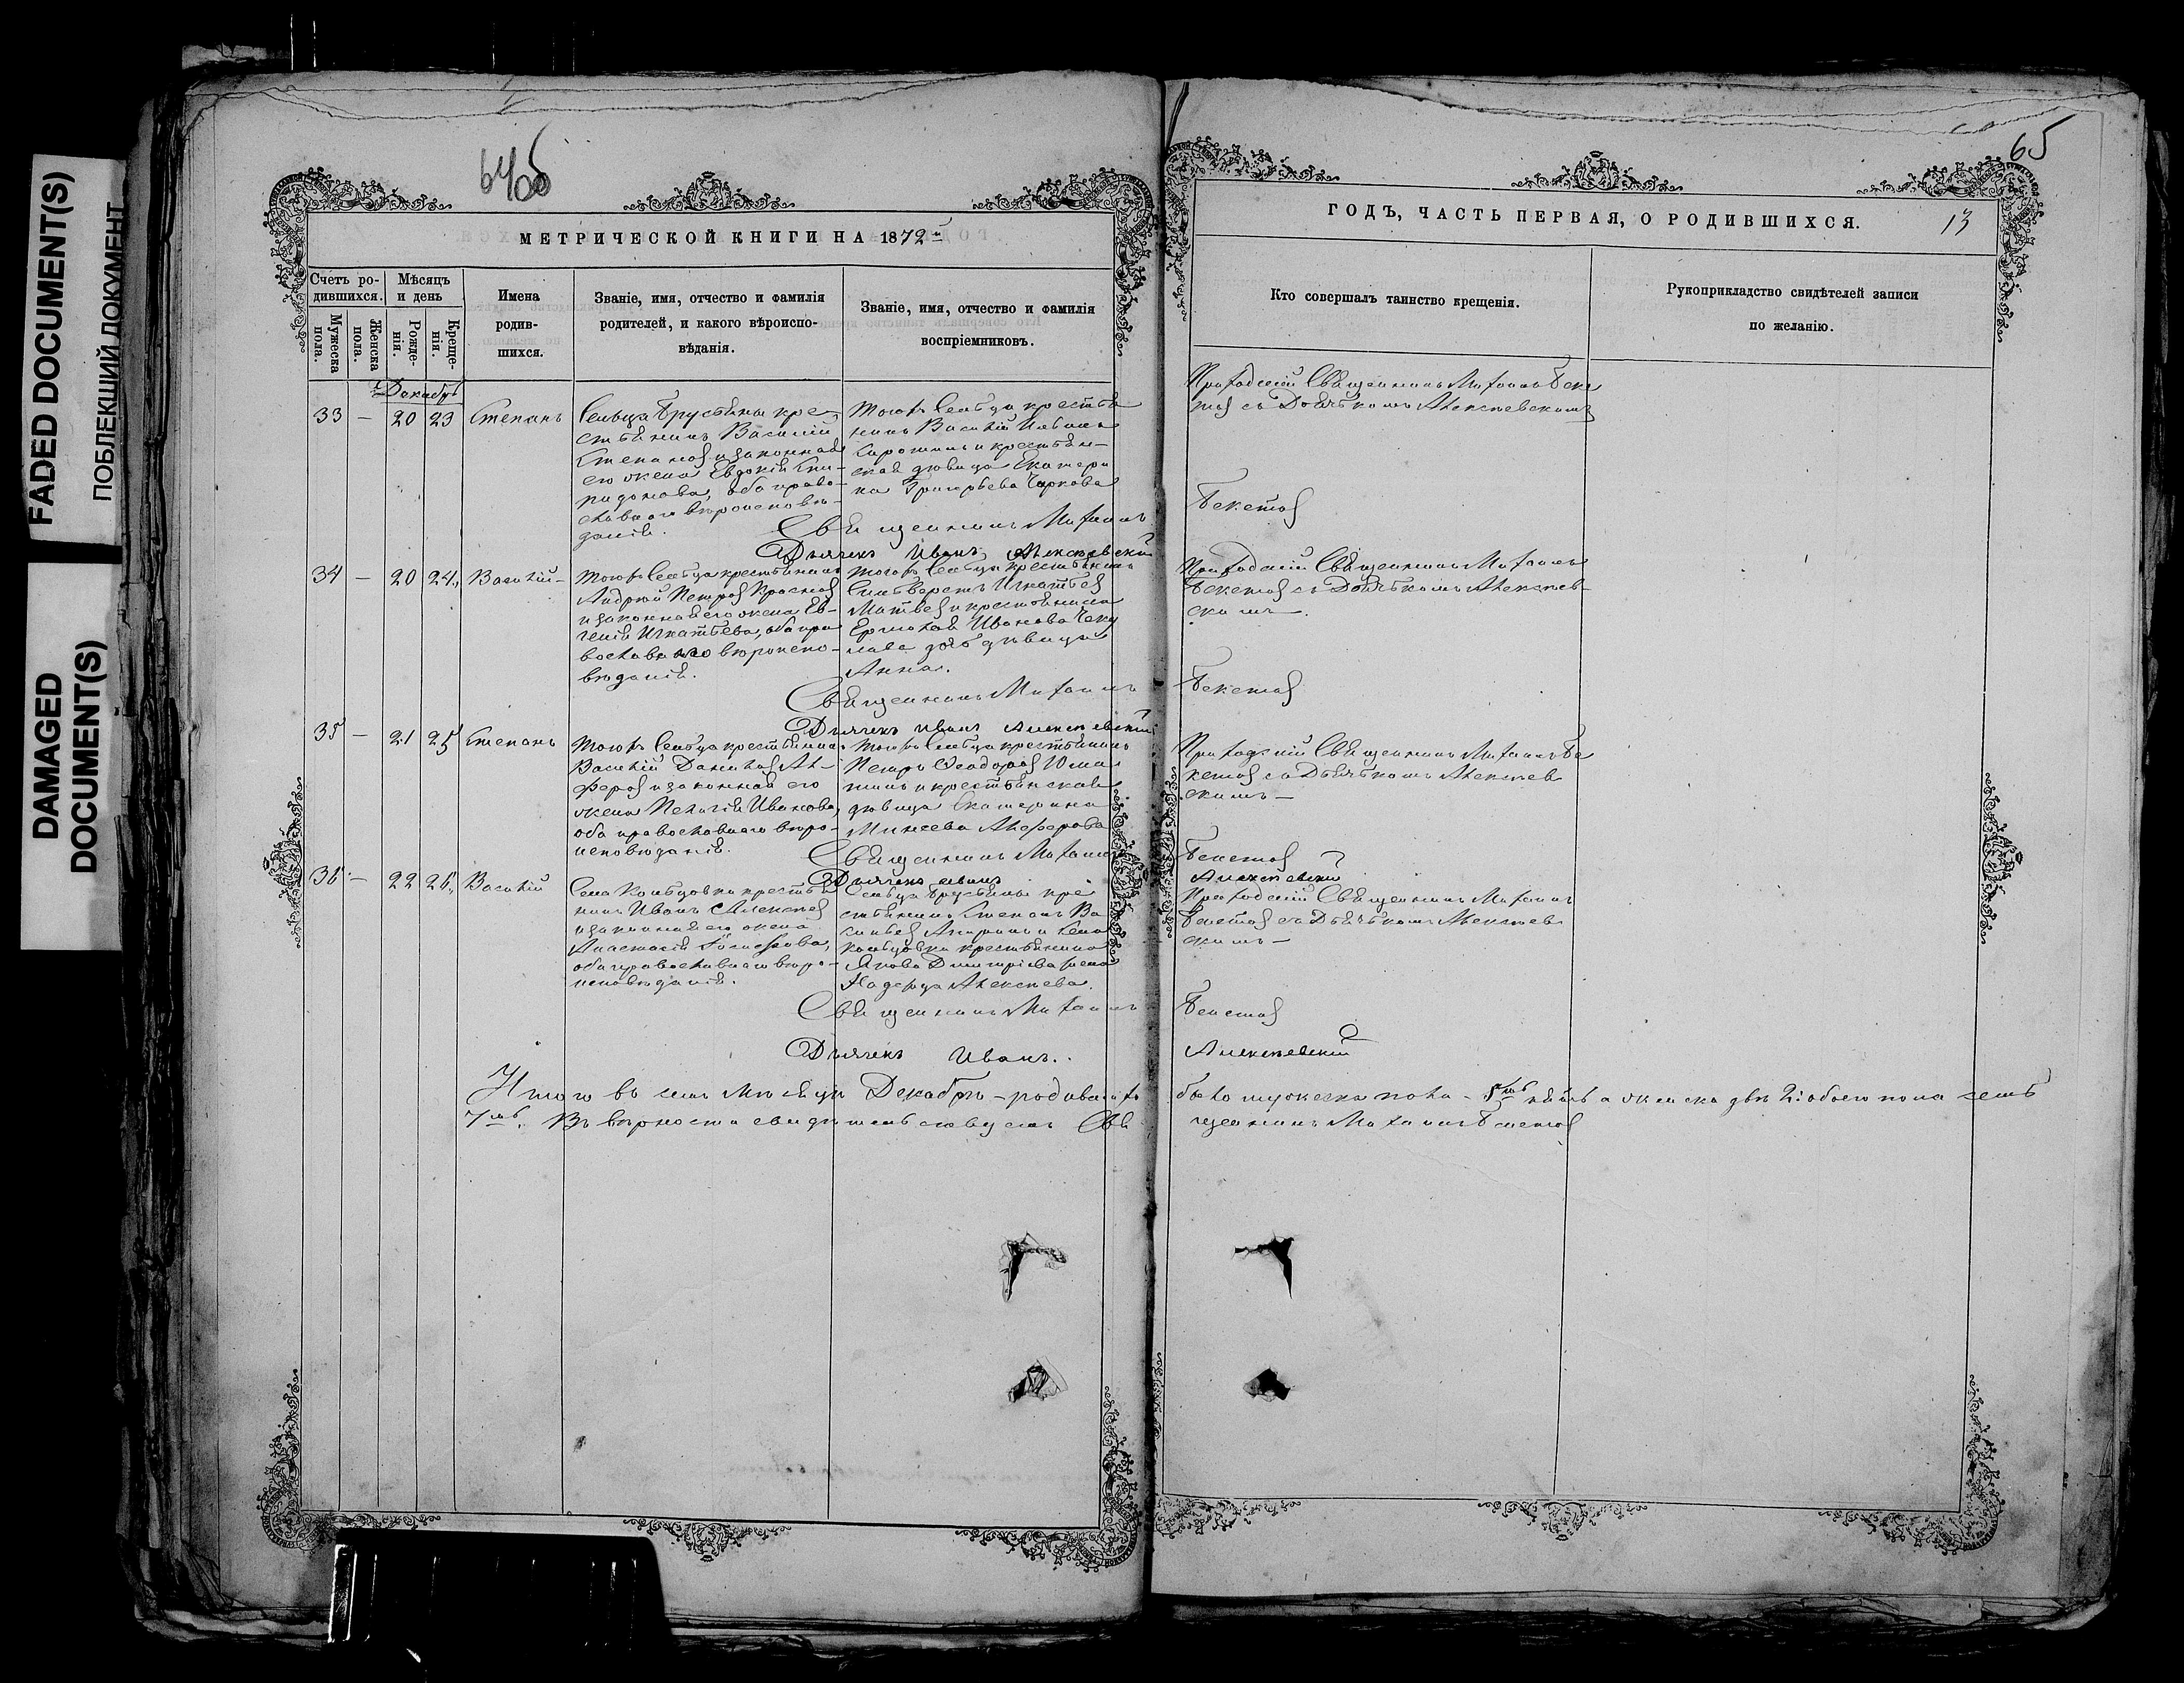 FADED DOCUMENT(S)
ПОБЛЕКШИЙ ДОКУМЕНТ
DAMAGED
DOCUMENT(S)
65
МЕТРИЧЕСКОЙ КНИГИ НА 1872й
Счетъ ро-
дившихся.
Мужеска
пола.
Женска
пола.
Мѣсяцъ
и день
Рожде-
нія.
Креще-
нія.
Имена
родив-
шихся.
Званіе, имя, отчество и фамилія
родителей, и какого вѣроиспо-
вѣданія.
Званіе, имя, отчество и фамилія
воспріемниковъ.
Декабрь
33 — 20 23 Степанъ
Сельца Брусяны кре-
стьянинъ Василій
Степановъ и законная
его жена Евдокія Спи-
ридонова, оба право-
славнаго вѣроисповѣ-
данія.
тогожъ Сельца крестья
нинъ Василій
и крестьян-
ская дѣвица Екатери
на Григорьева
Священникъ Михаилъ
Дьячекъ Иванъ Алексѣевскій
34 — 20 24. Василій —
тогожъ Сельца крестьянинъ
Андрей Петровъ
и законная его жена Ев-
генія Игнатьева, оба пра
вославнаго вѣроиспо-
вѣданія.
тогожъ Сельца крестьянинъ
Сильверстъ Игнатьевъ
Матвѣевъ и крестьянина
Ермолая Иванова
дочь дѣвица
Анна.
Священникъ Михаилъ
Дьячекъ Иванъ Алексѣевскій
35 — 21 25 Степанъ
тогожъ Сельца крестьянинъ
Василій Даниловъ Ал-
феровъ и законная его
жена Пелагія Иванова,
оба православнаго вѣро-
исповѣданія.
тогожъ Сельца крестьянинъ
Петръ Ѳеодоровъ
и крестьянская
дѣвица Екатерина
Минеева Алферова
Священникъ Михаилъ
Дьячекъ Иванъ
36. — 22 26. Василій
Села Кольцовки крестья
нинъ Иванъ Алексѣевъ
и законная его жена
Анастасія
оба православнаго вѣро-
исповѣданія.
Сельца Брусяны кре
стьянинъ Степанъ Ва
сильевъ и Села
Кольцовки крестьянина
Якова Димитріева жена
Алексѣева.
Священникъ Михаилъ
Дьячекъ Иванъ.
Итого въ семъ мѣсяцѣ Декабрѣ — родившихъ
7мь. Въ вѣрности свидѣтельствуемъ Свя
65
ГОДЪ, ЧАСТЬ ПЕРВАЯ, О РОДИВШИХСЯ.
13
Кто совершалъ таинство крещенія.
Рукоприкладство свидѣтелей записи
по желанію.
Приходскій Священникъ Михаилъ Беке
товъ съ Дьячкомъ Алексѣевскимъ
Бекетовъ
Приходскій Священникъ Михаилъ
Бекетовъ съ Дьячкомъ Алексѣев-
скимъ.
Бекетовъ
Приходскій Священникъ Михаилъ Бе
кетовъ съ Дьячкомъ Алексѣев
скимъ —
Бекетовъ
Алексѣевскій
Приходскій Священникъ Михаилъ
Бекетовъ съ Дьячкомъ Алексѣев
скимъ —
Бекетовъ
Алексѣевскій
было мужеска пола — а женска двѣ 2: обоего пола семь
щенникъ Михаилъ Бекетовъ